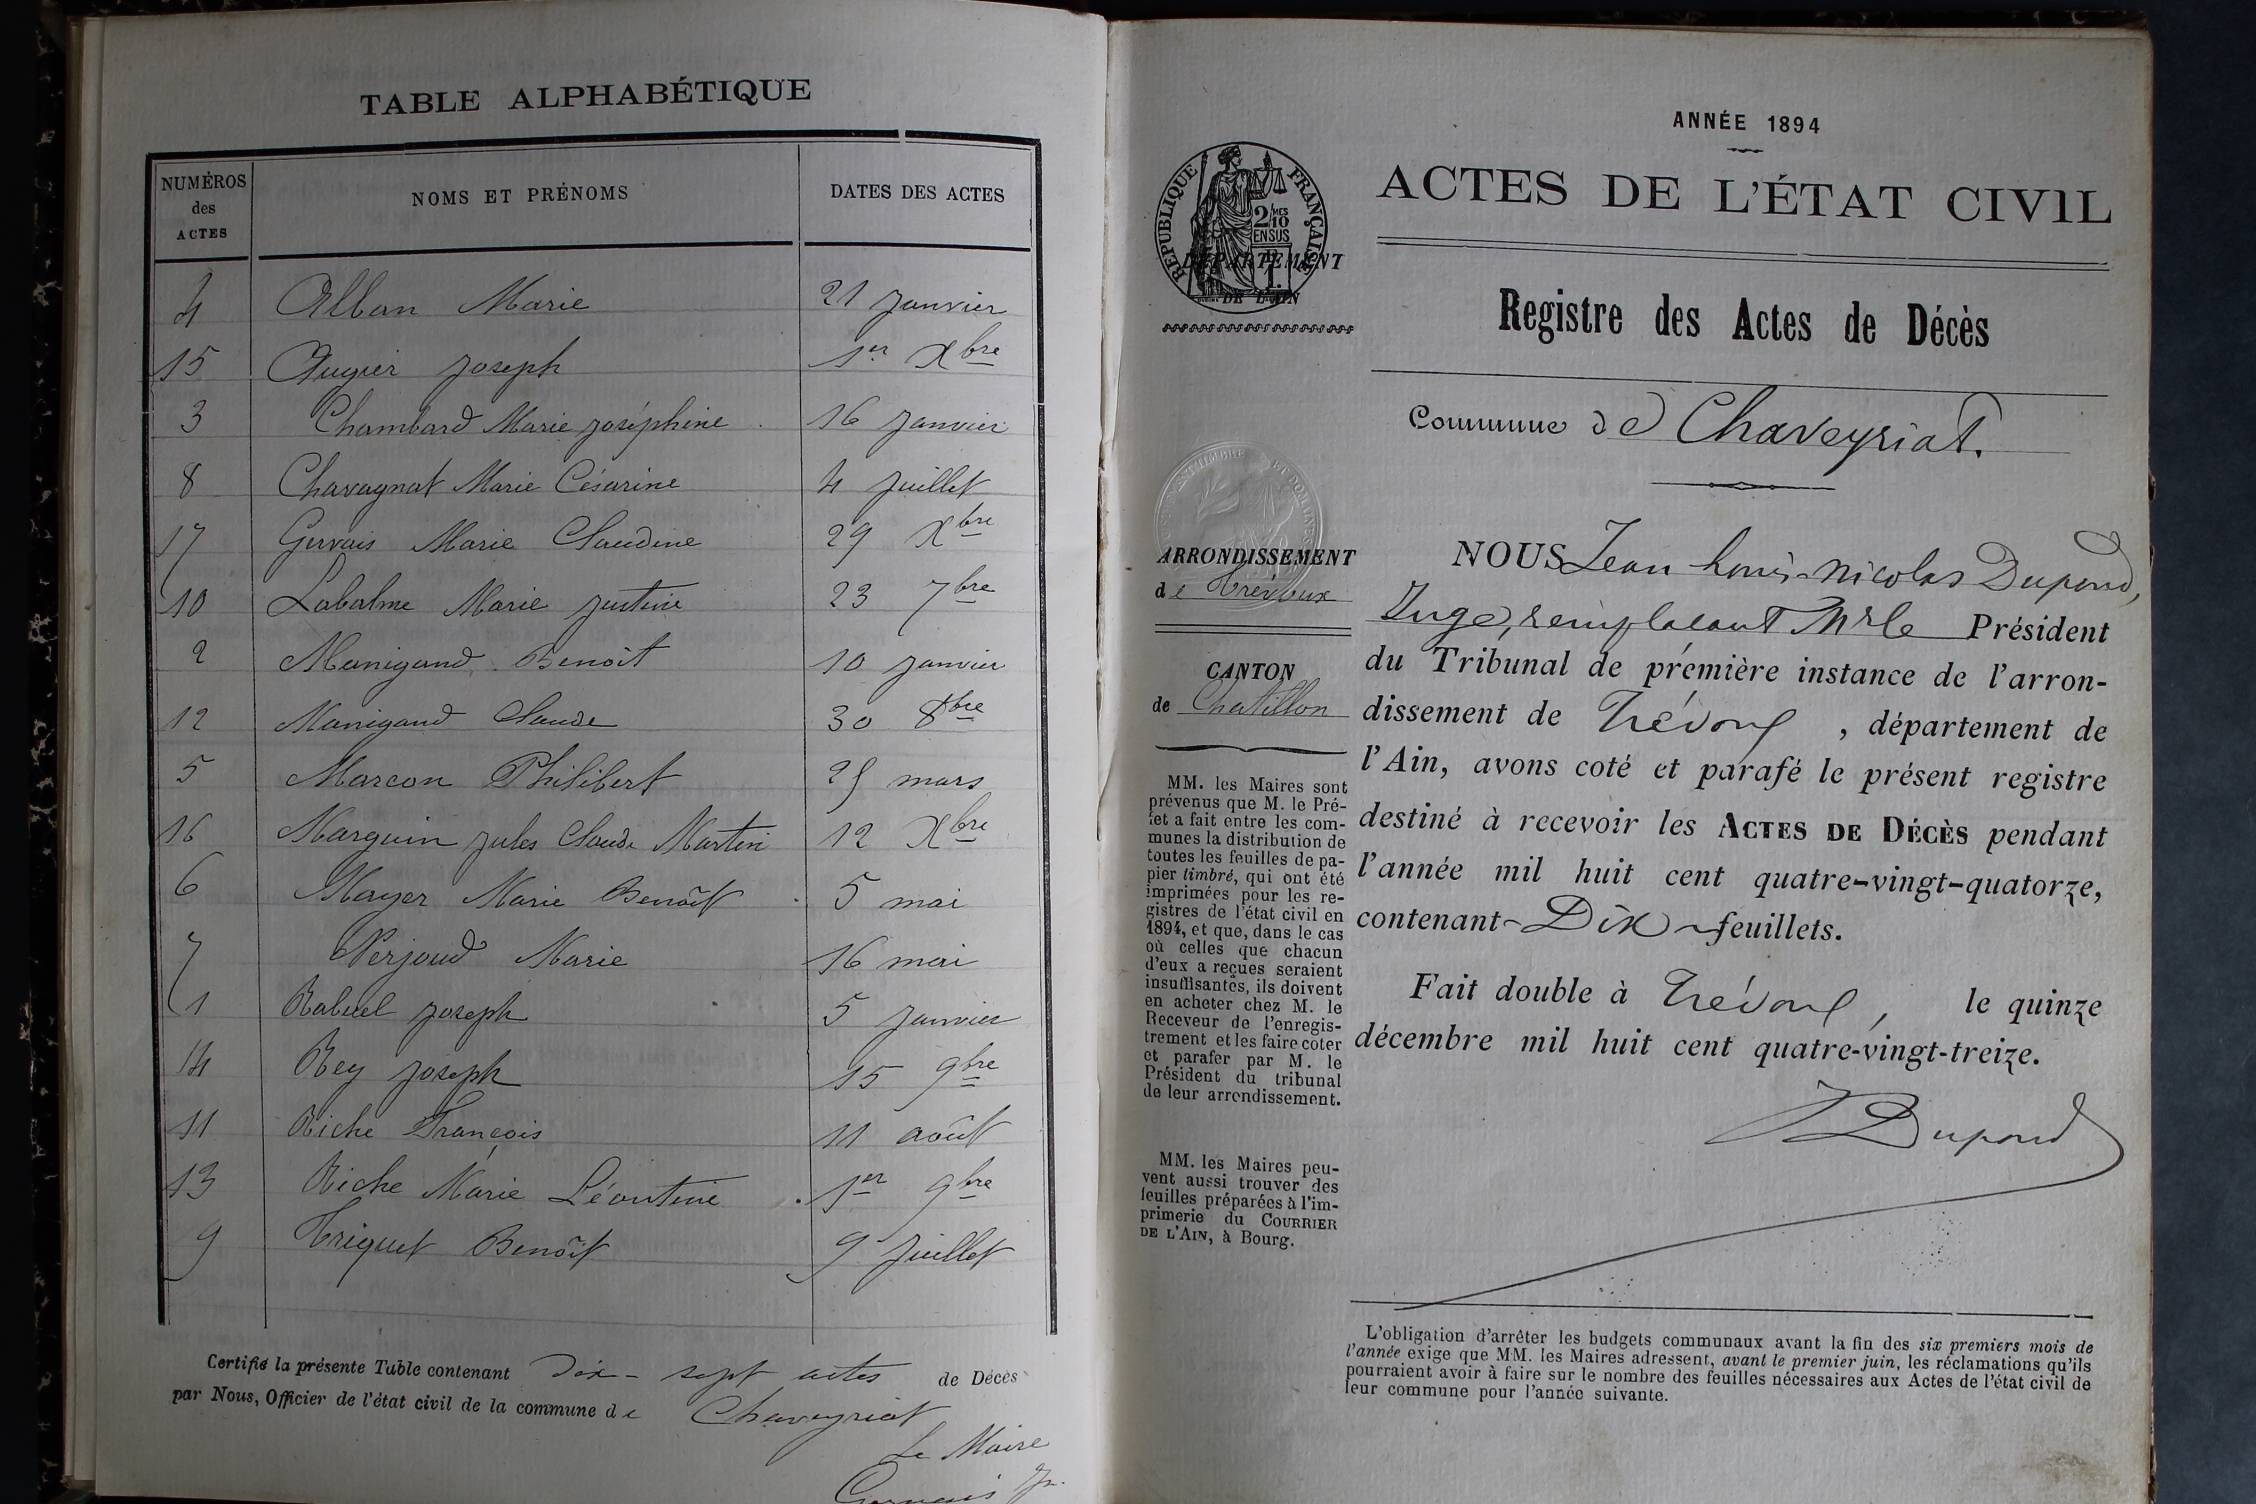 TABLE ALPHABÉTIQUE
NUMÉROS
des
ACTES
NOMS ET PRÉNOMS
DATES DES ACTES
4 Alban Marie 21 janvier
15 Augier joseph 1er Xbre
3 Chambard Marie joséphine 16 janvier
8 Chavagnat Marie Césarine 4 juillet
17 Gervais Marie Claudine 29 Xbre
10 Labalme Marie justine 23 7bre
2 Manigand Benoît 10 janvier
12 Manigand Claude 30 8bre
5 Marcon Philibert 25 mars
16 Marguin jules Claude Martin 12 Xbre
6 Mayer Marie Benoît 5 mai
7 Perjoud Marie 16 mai
1 Rabuel joseph 5 janvier
14 Rey joseph 15 9bre
11 Riche François 11 août
13 Riche Marie Léontine 1er 9bre
9 Triquet Benoît 9 juillet
Certifié la présente Table contenant Dix-sept actes de Décès
par Nous, Officier de l'état civil de la commune de Chaveyriat
Le Maire
Gervais
ANNÉE 1894
RÉPUBLIQUE FRANÇAISE
2/10MES
EN SUS
DÉPARTEMENT
DE L'AIN
ACTES DE L'ÉTAT CIVIL
Registre des Actes de Décès
Commune de Chaveyriat.
ARRONDISSEMENT
de Trévoux
CANTON
de Chatillon
MM. les Maires sont
prévenus que M. le Pré-
fet a fait entre les com-
munes la distribution de
toutes les feuilles de pa-
pier timbré, qui ont été
imprimées pour les re-
gistres de l'état civil en
1894, et que, dans le cas
où celles que chacun
d'eux a reçues seraient
insuffisantes, ils doivent
en acheter chez M. le
Receveur de l'enregis-
trement et les faire coter
et parafer par M. le
Président du tribunal
de leur arrondissement.
MM. les Maires peu-
vent aussi trouver des
feuilles préparées à l'im-
primerie du COURRIER
DE L'AIN, à Bourg.
NOUS Jean Louis-Nicolas Dupond,
Juge, remplacant Mr le Président
du Tribunal de première instance de l'arron-
dissement de Trévoux, département de
l'Ain, avons coté et parafé le présent registre
destiné à recevoir les ACTES DE DÉCÈS pendant
l'année mil huit cent quatre-vingt-quatorze,
contenant Dix feuillets.
Fait double à Trévoux, le quinze
décembre mil huit cent quatre-vingt-treize.
Dupond
L'obligation d'arrêter les budgets communaux avant la fin des six premiers mois de
l'année exige que MM. les Maires adressent, avant le premier juin, les réclamations qu'ils
pourraient avoir à faire sur le nombre des feuilles nécessaires aux Actes de l'état civil de
leur commune pour l'année suivante.